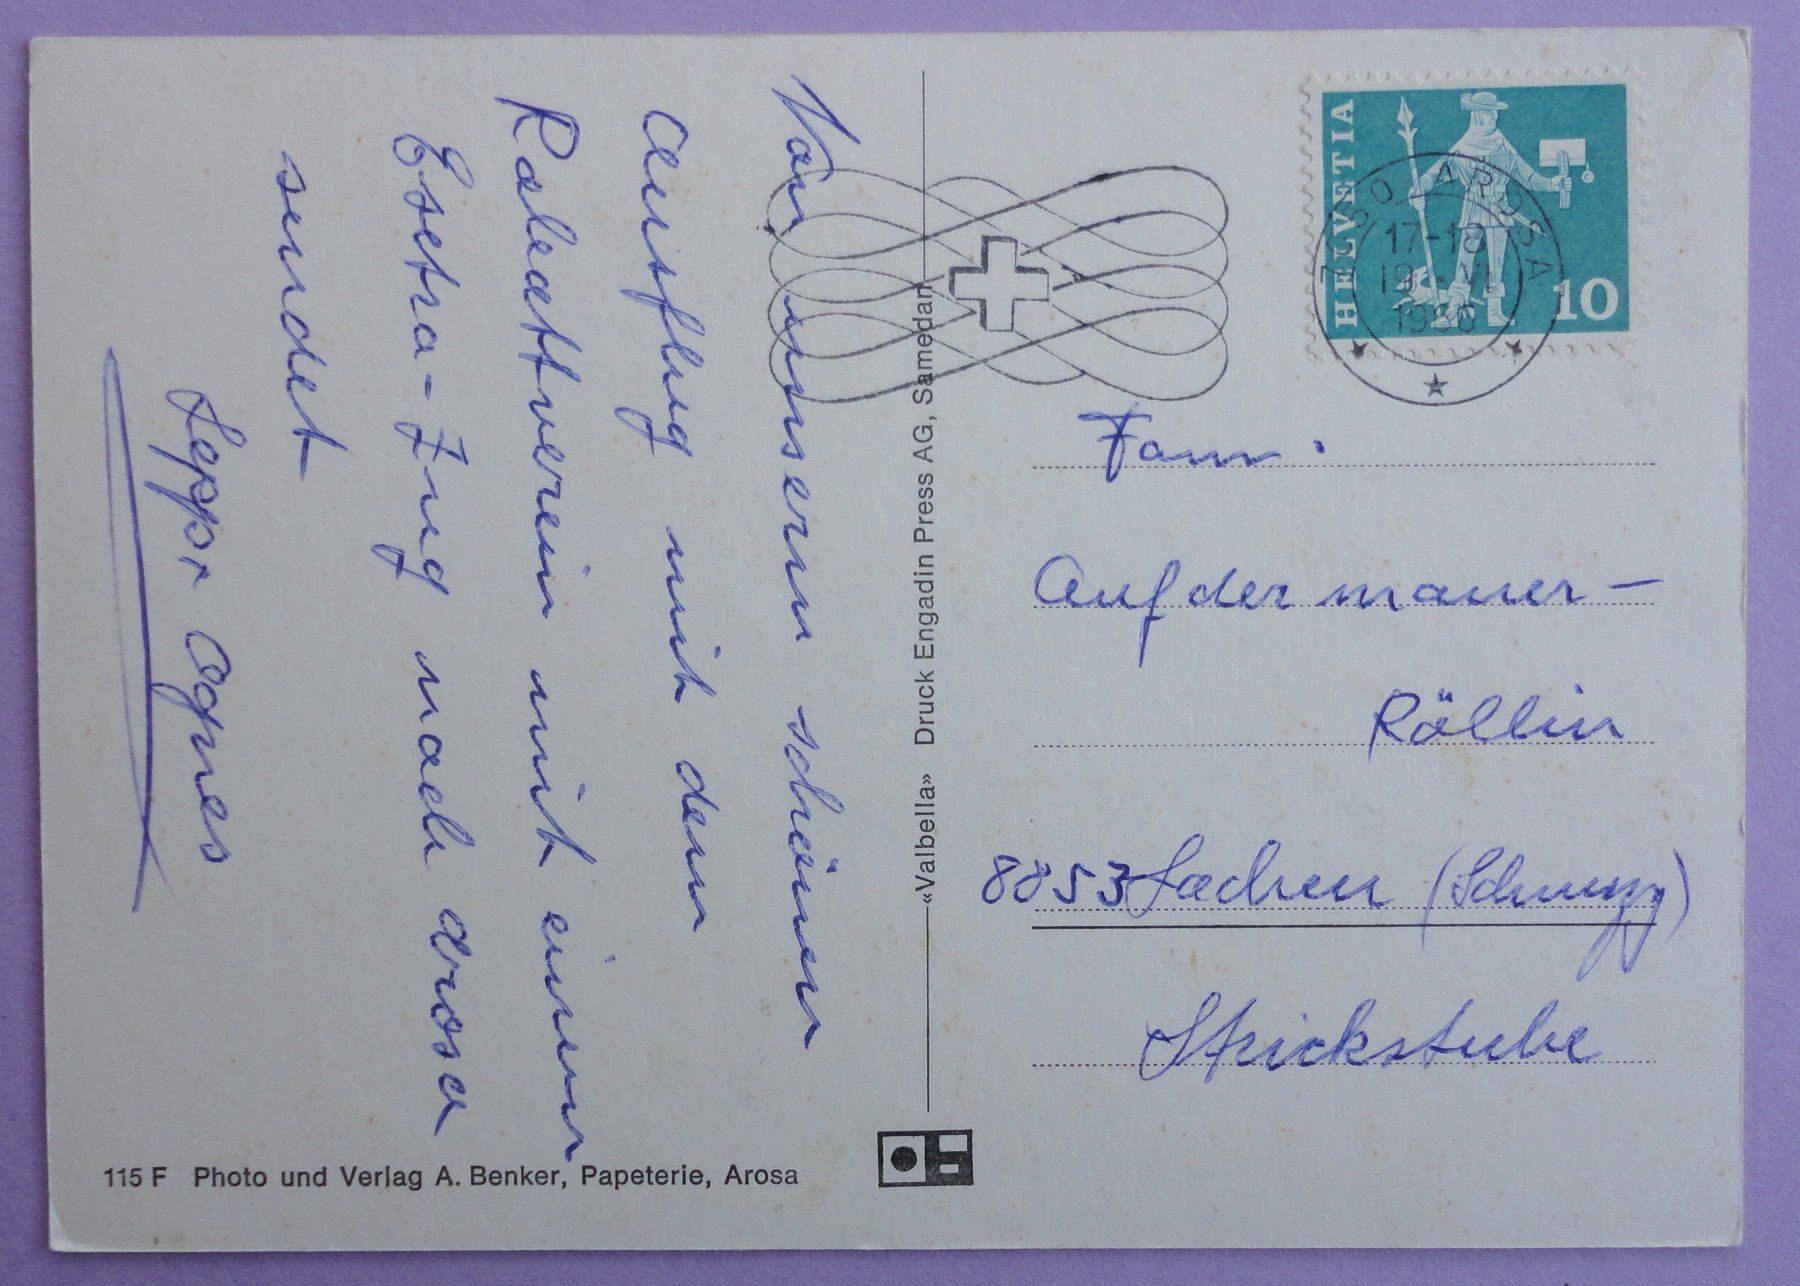 Von unserm schönen
Ausflug mit dem
Rabattverein mit einem
Extra-Zug nach Arosa
sendet
Agnes
«Valbella» Druck Engadin Press AG, Samedan
HELVETIA
10
AROSA
17-18
19 VI
1968
Fam.
Auf der mauer –
Röllin
8853 Lachen (Schwyz)
Strickstube
115 F Photo und Verlag A. Benker, Papeterie, Arosa